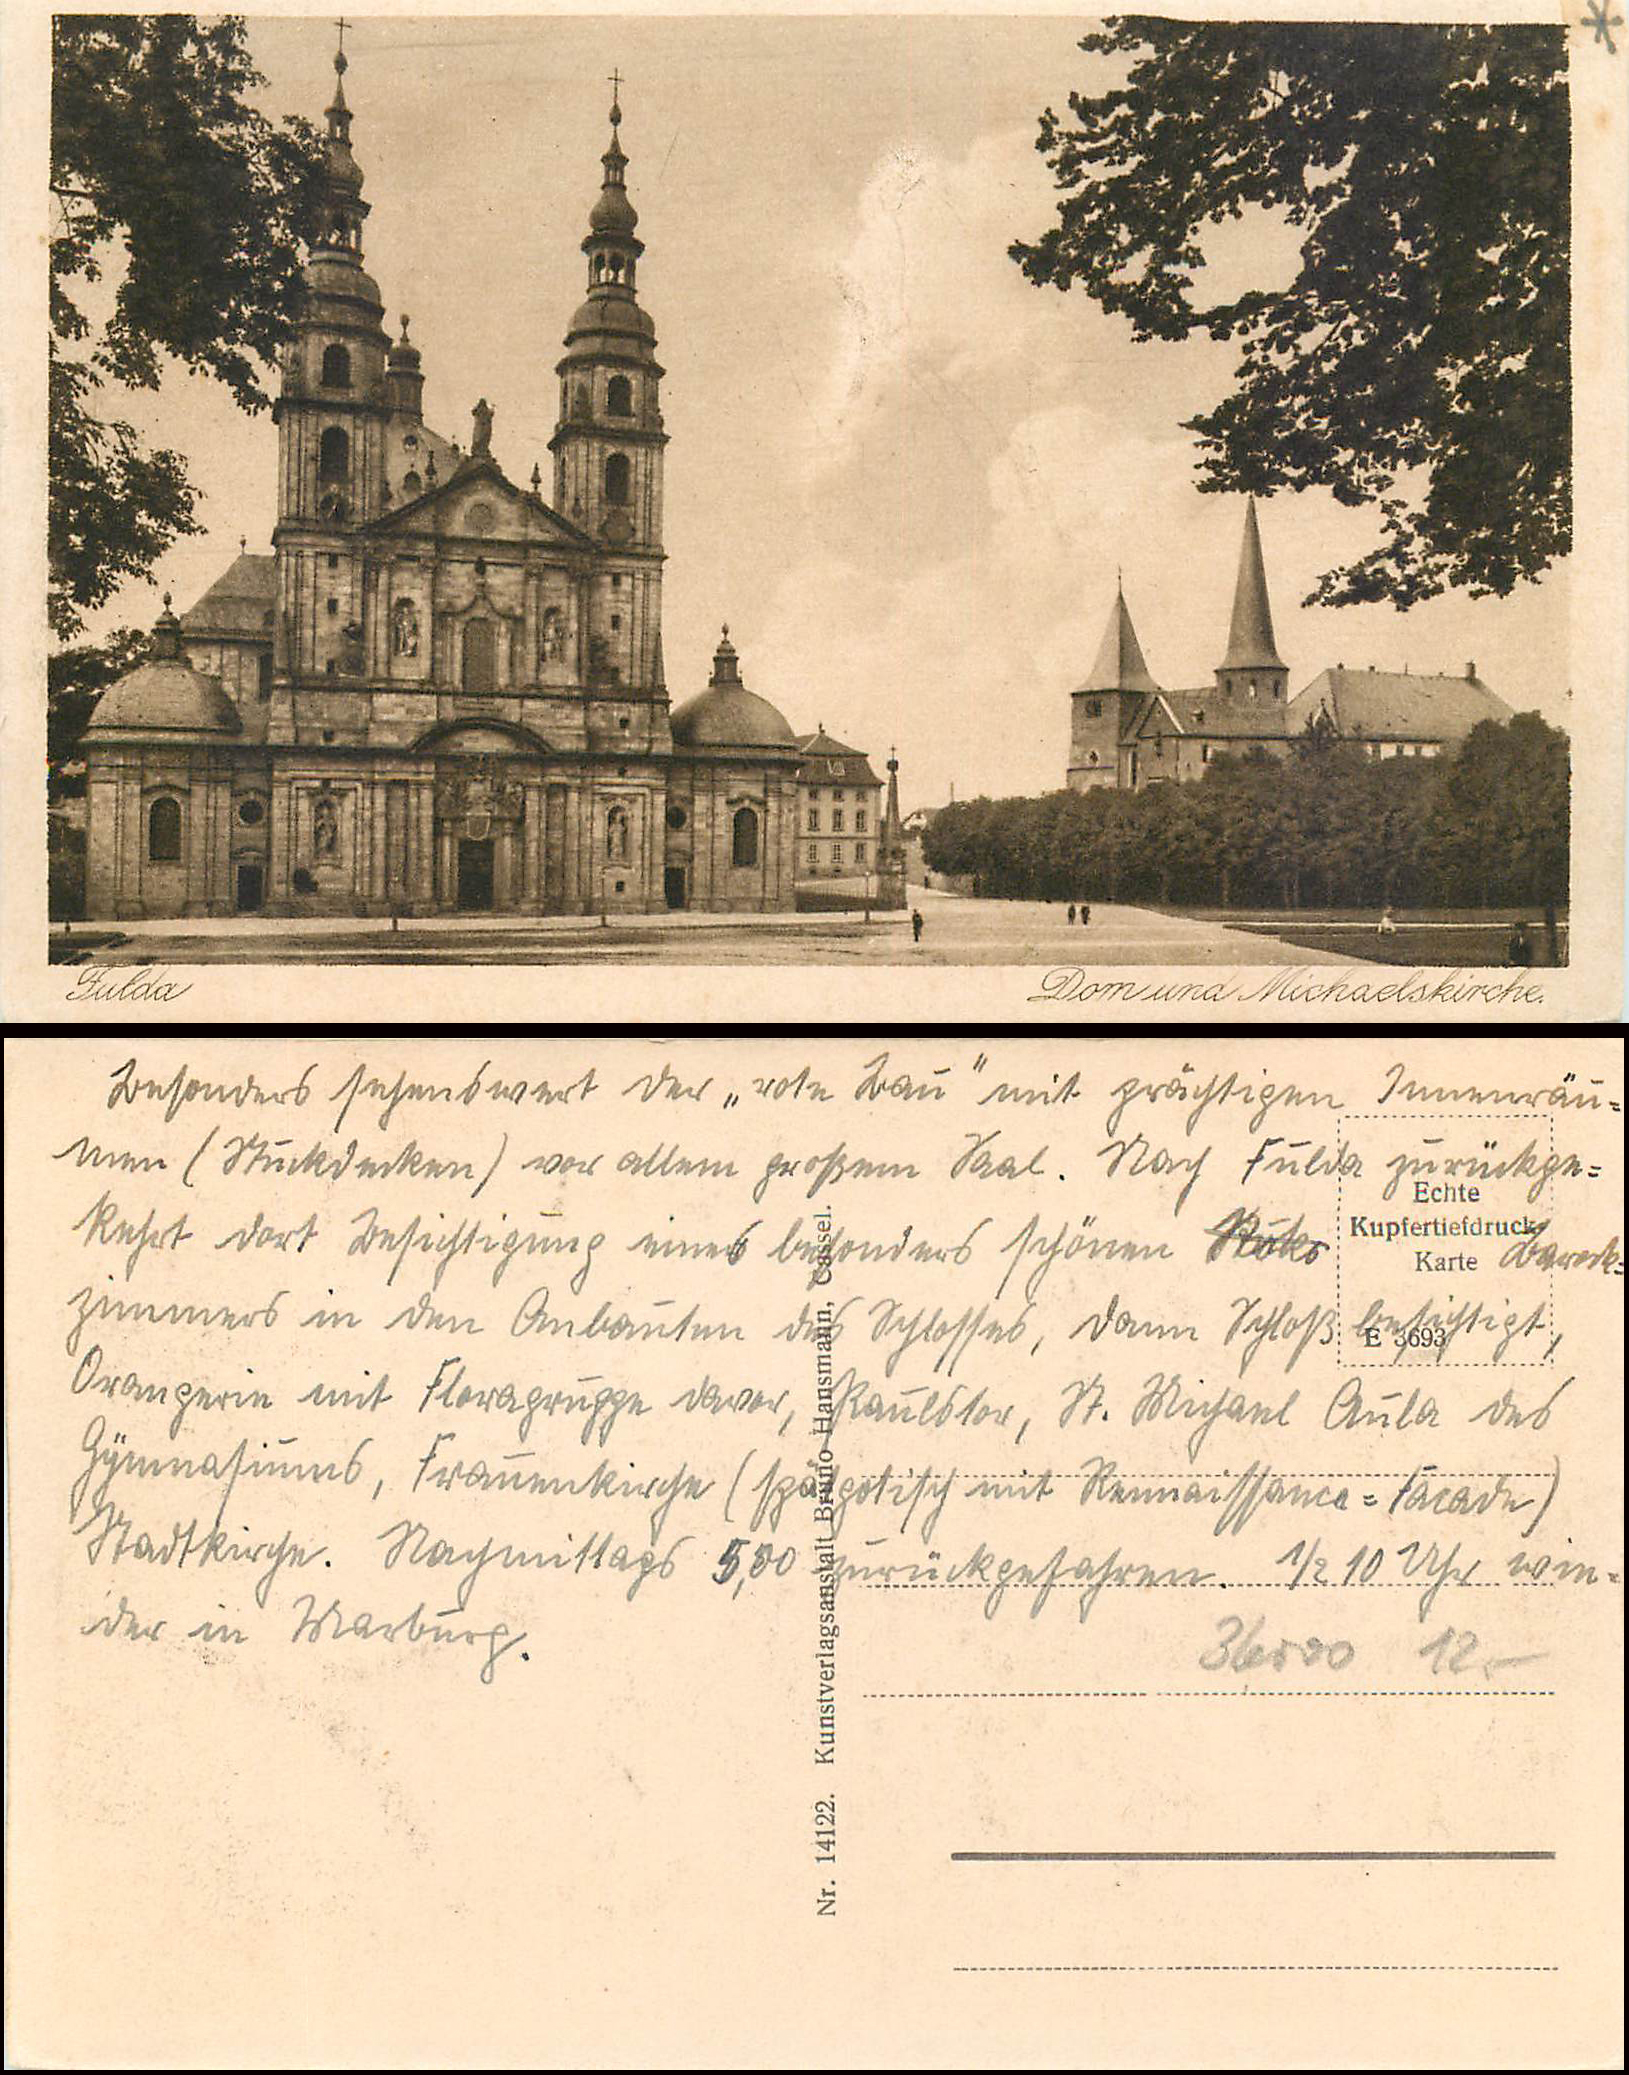 Fulda
Dom und Michaelskirche.
Besonders sehenswert der „rote Bau" mit prächtigen Innenräu=
men (Stuckdecken) vor allem großem Saal. Nach Fulda zurückge=
kehrt dort Besichtigung eines besonders schönen Barock=
zimmers in den Anbauten des Schlosses, dann Schloß besichtigt,
Orangerie mit Floragruppe davor, Paulstor, St. Michael Aula des
Gymnasiums, Frauenkirche (spätgotisch mit Rennaissance=Facade)
Stadtkirche. Nachmittags 5,00 zurückgefahren. 1/2 10 Uhr wie=
der in Marburg.
Echte
Kupfertiefdruck-
Karte
E 3693
12,-
Nr. 14122. Kunstverlagsanstalt Bruno Hansmann, Cassel.